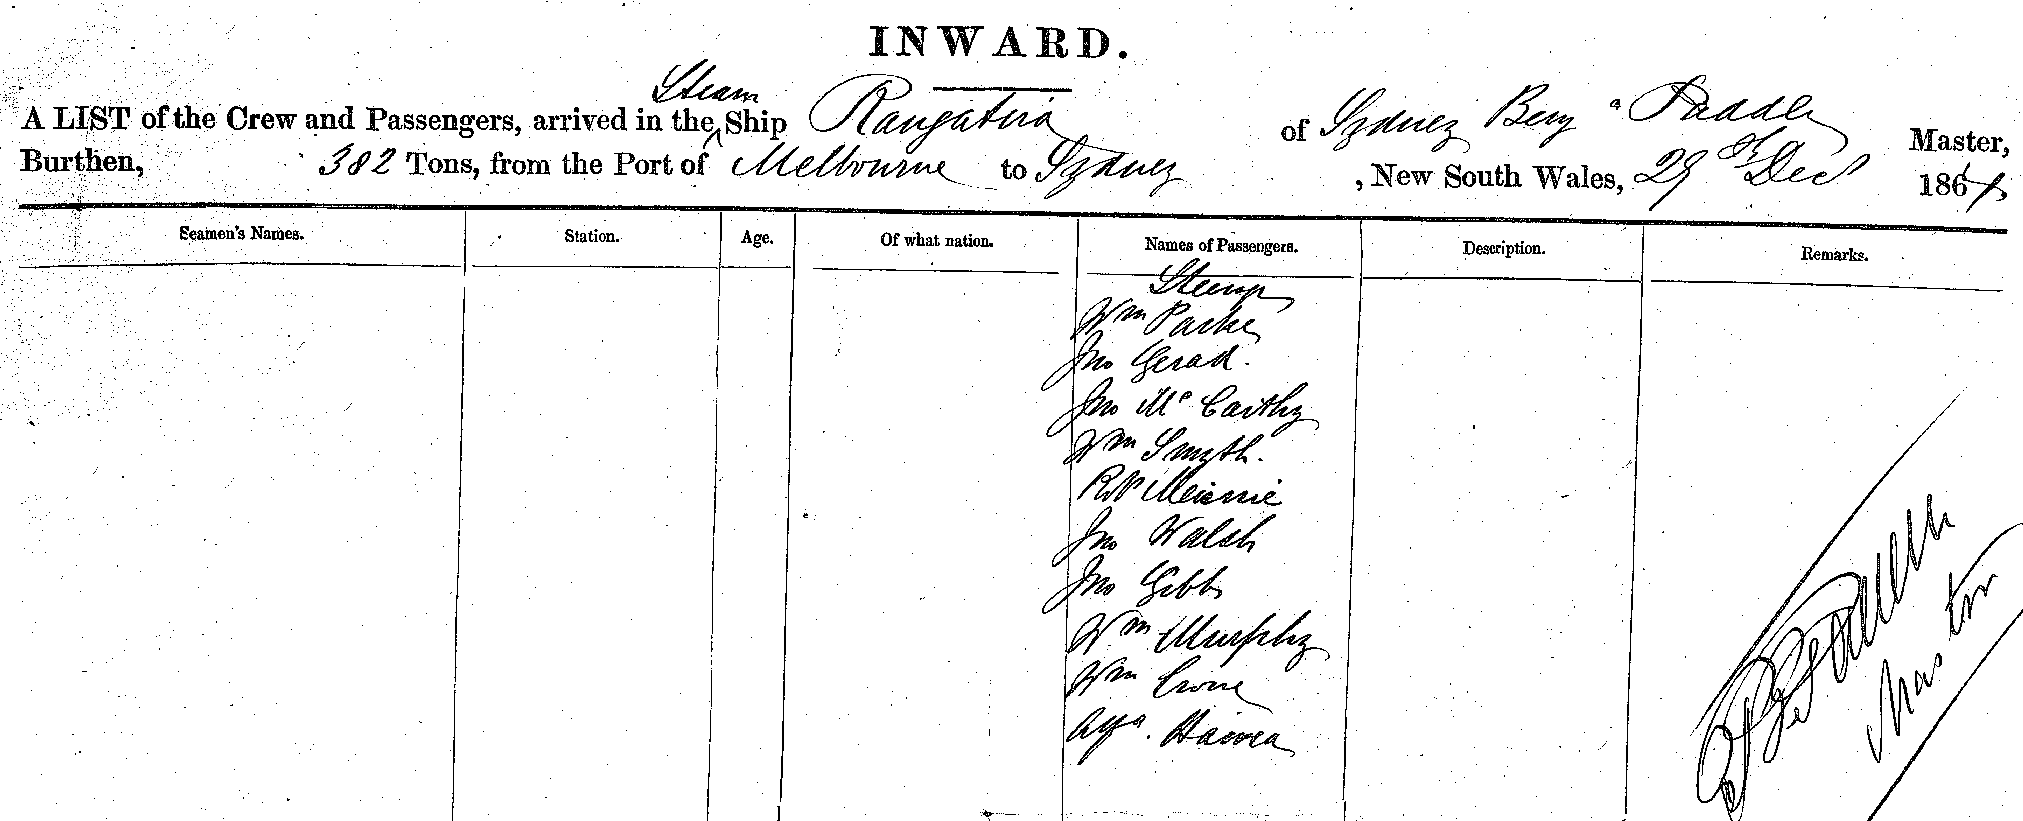 INWARD.
A LIST of the Crew and Passengers, arrived in the Steam Ship Rangatira of Sydney Benjn Paddle Master,
Burthen, 382 Tons, from the Port of Melbourne to Sydney , New South Wales, 29 of Decr 1864
Seamen's Names. Station. Age. Of what nation. Names of Passengers. Description. Remarks.
Wm Parke
Jno Gerad.
Jno McCarthy
Wm Smyth.
Rt
Jno Walsh
Jno Gibbs
Wm Murphy
Wm Crone
Master